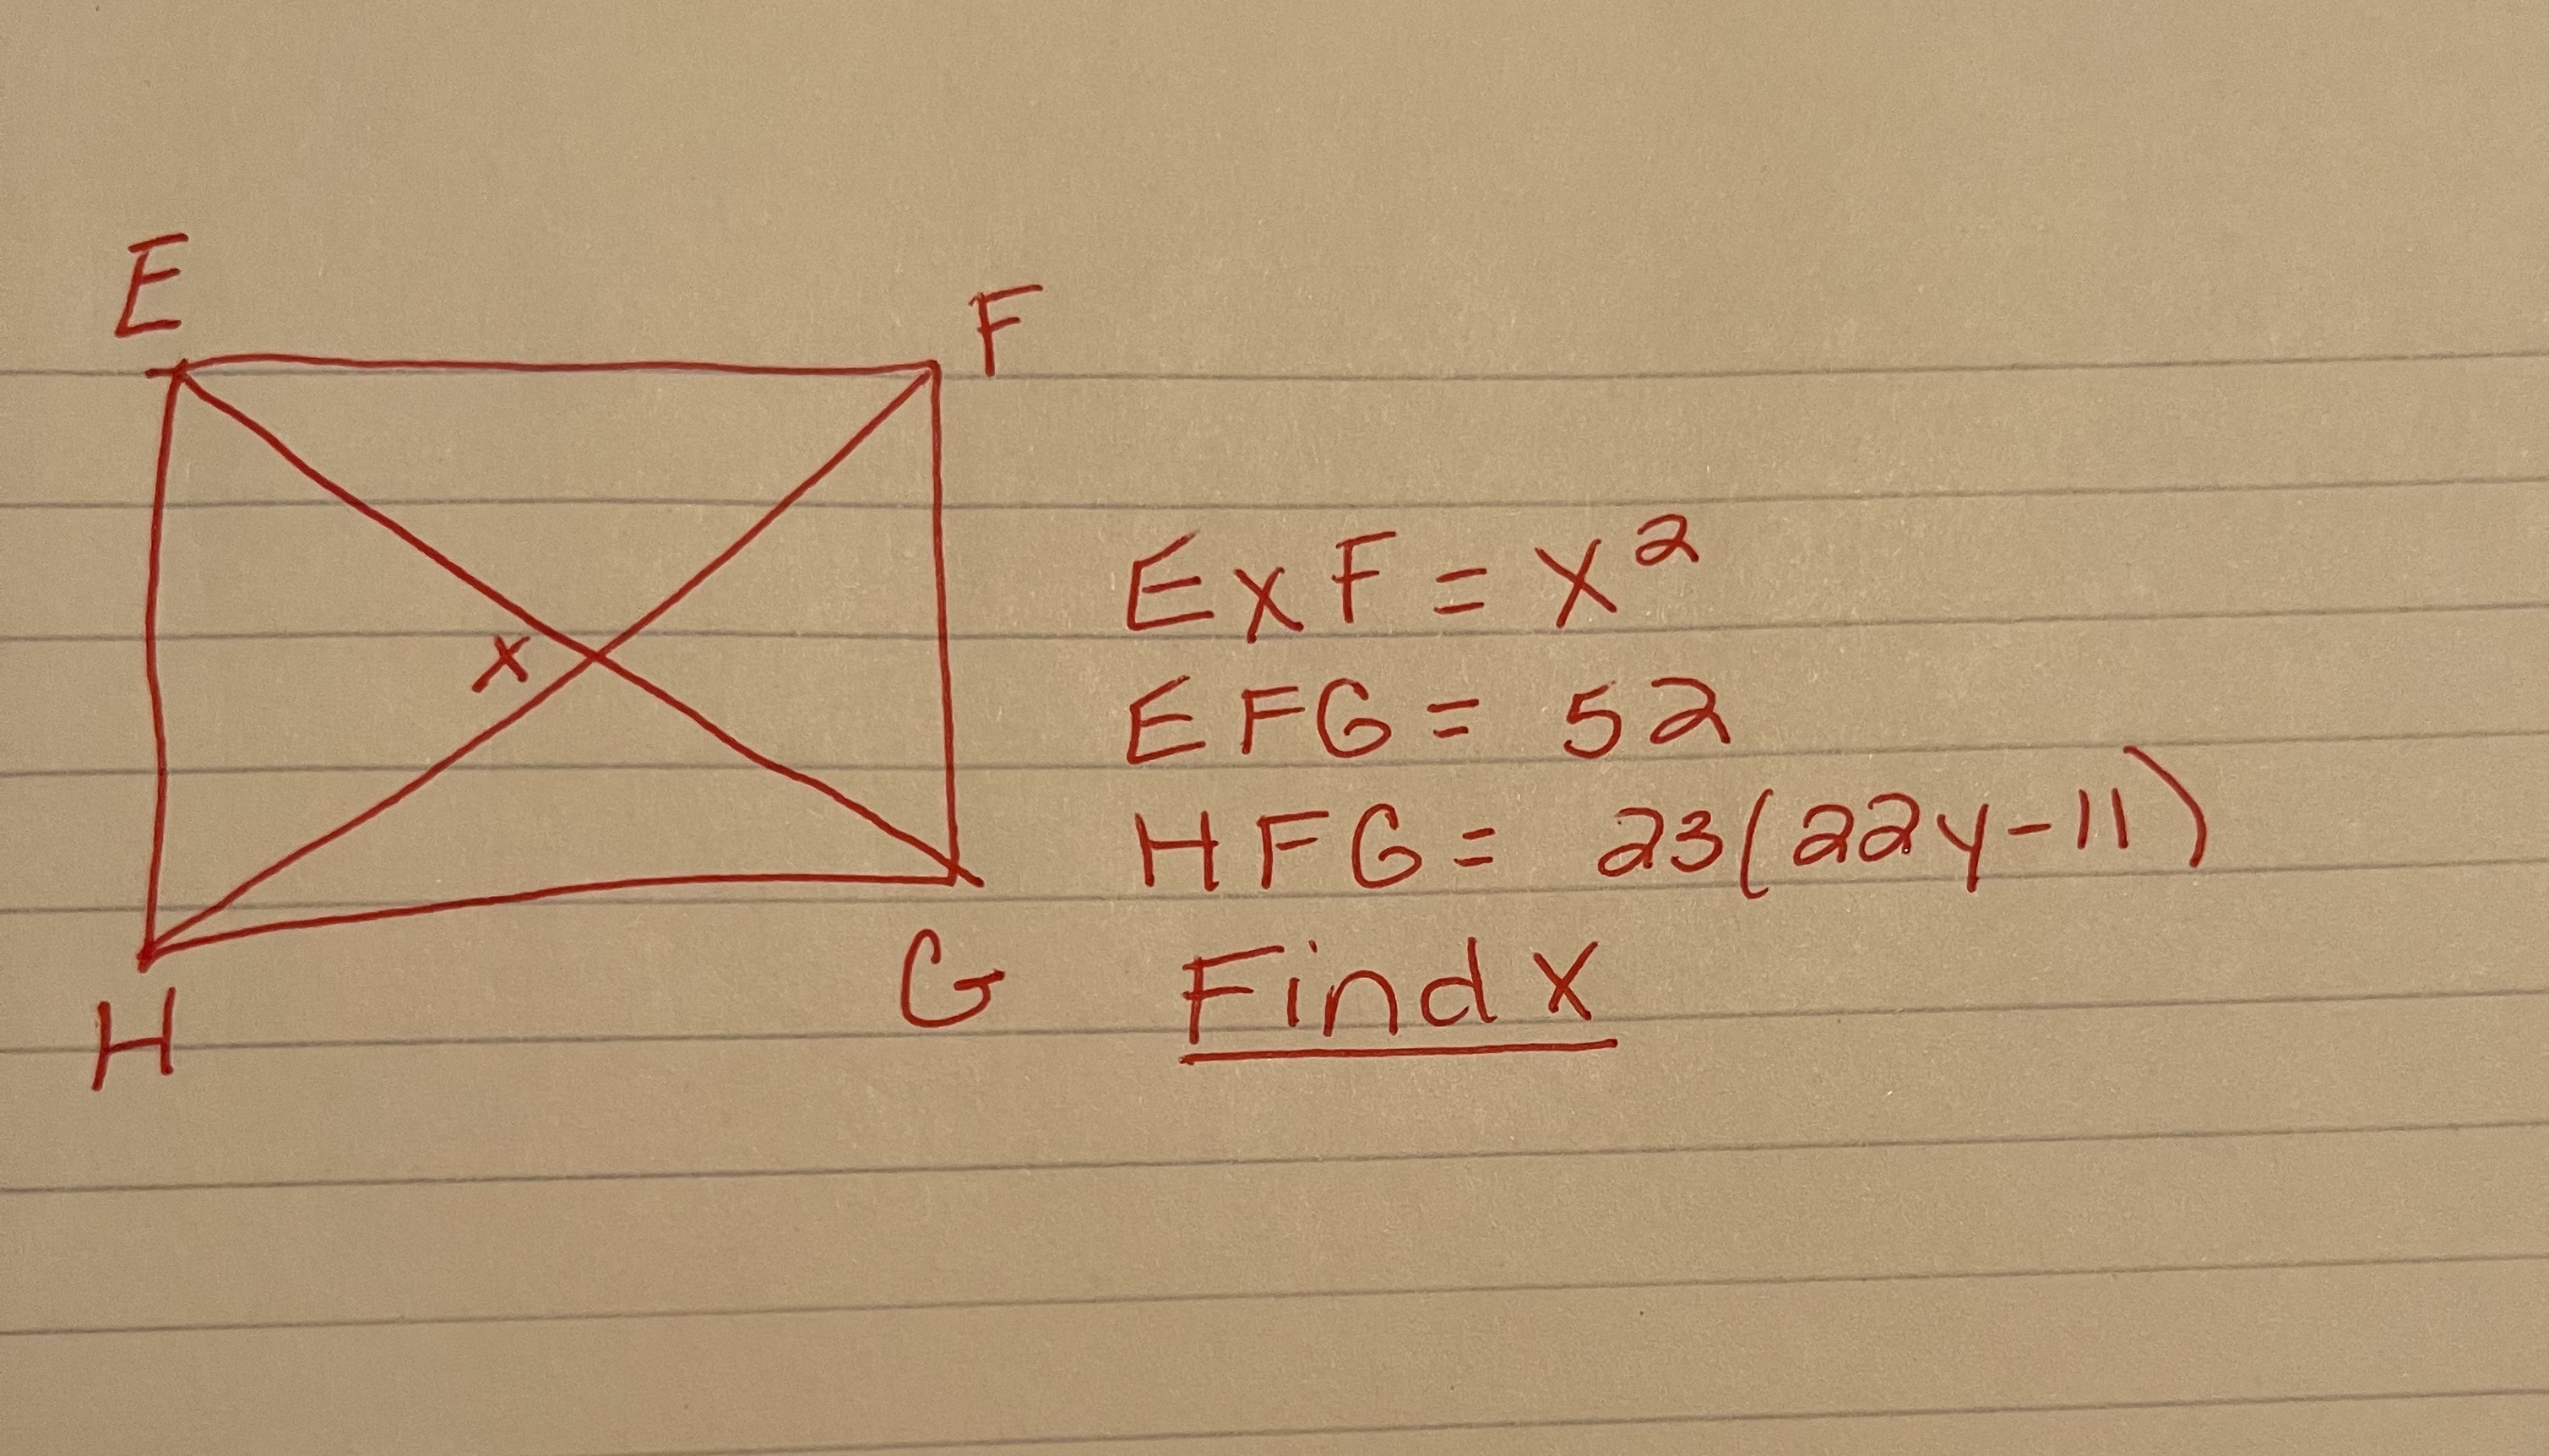 E
F
x
H
G
ExF = x²
EFG = 52
HFG = 23(22y-11)
Find x